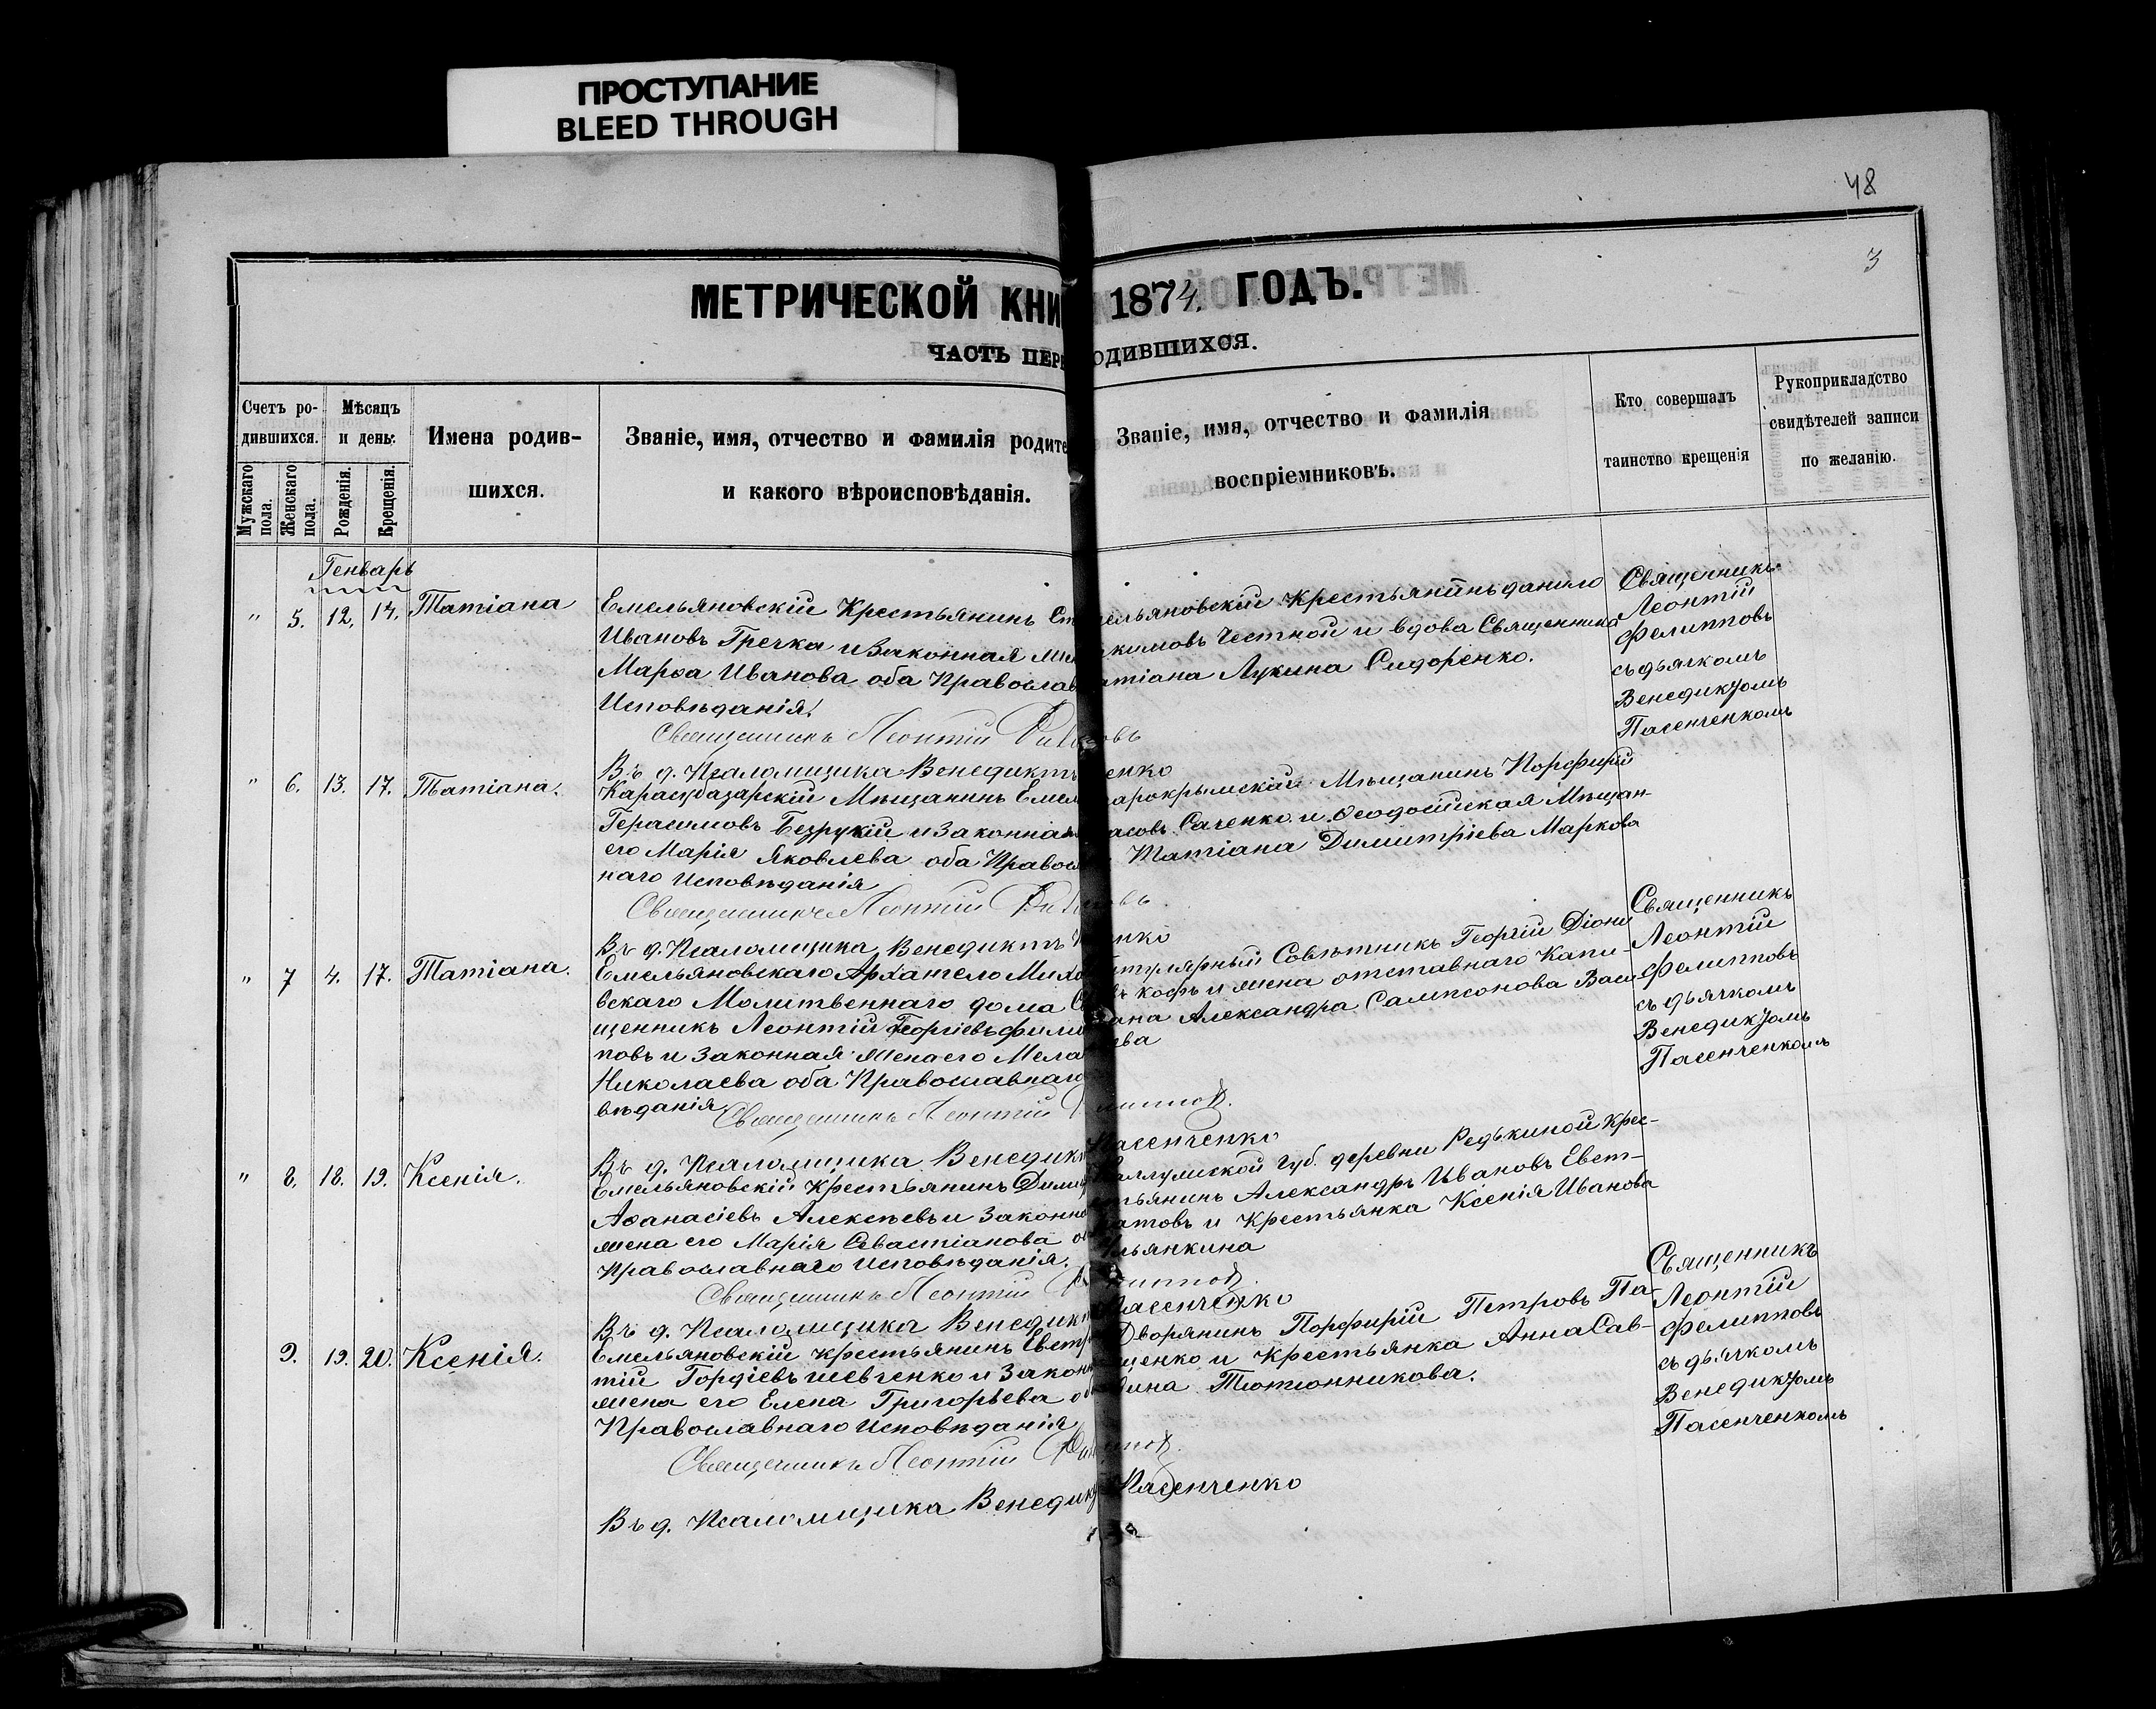 ПРОСТУПАНИЕ
BLEED THROUGH
48
3
МЕТРИЧЕСКОЙ КНИ 1874. ГОДЪ.
ЧАСТЬ ПЕР ОДИВШИХСЯ.
Счетъ ро-
дившихся.
Мѣсяцъ
и день.
Мужскаго
пола.
Женскаго
пола.
Рожденія.
Крещенія.
Имена родив-
шихся.
Званіе, имя, отчество и фамилія родите
и какого вѣроисповѣданія.
Званіе, имя, отчество и фамилія
воспріемниковъ.
Кто совершалъ
таинство крещенія
Рукоприкладство
свидѣтелей записи
по желанію.
Генварь
" 5. 12. 17. Татіана
Емельяновскій Крестьянинъ Ст
Ивановъ Гречка и Законная
Марѳа Иванова оба Православ
Исповѣданія.
Священникъ Леонтій Фил
ельяновскій Крестьянинъ Данило
кимовъ Честной и вдова Священника
атіана Лукина Сидоренко.
овъ
Священникъ
Леонтій
Фелипповъ
съ дьячкомъ
Венедиктомъ
Пасенченкомъ
Въ д. Псаломщика Венедиктъ енко
" 6. 13. 17. Татіана.
Карасубазарскій Мѣщанинъ Емел
Герасимовъ Безрукій и Законная
его Марія Яковлева оба Правосл
наго Исповѣданія
Священникъ Леонтій Фил овъ
арокрымскій Мѣщанинъ Порфирій
асовъ Саченко и Ѳеодосійская Мѣщан-
Татіана Димитріева Маркова
Въ д. Псаломщика Венедиктъ енко
" 7 4. 17. Татіана.
Емельяновскаго Архангело Миха
вскаго Молитвеннаго дома С
щенникъ Леонтій Георгіевъ Фили
повъ и Законная жена его Мела
Николаева оба Православнаго
вѣданія
Священникъ Леонтій Ф иппов.
итулярный Совѣтникъ Георгій Діони
въ Кофъ и жена отставнаго Капи-
тана Александра Сампсонова Васи
ева
Священникъ
Леонтій
Фелипповъ
съ дьячкомъ
Венедиктомъ
Пасенченкомъ
Въ д. Псаломщика Венедик Пасенченко
" 8. 18. 19. Ксенія.
Емельяновскій Крестьянинъ Дими
Аѳанасіевъ Алексѣевъ и Законна
жена его Марія Севастіанова о
Православнаго Исповѣданія.
Священникъ Леонтій Ф иппов.
Губ. деревни Редькиной Крес-
тьянинъ Александръ Ивановъ Евст-
атовъ и Крестьянка Ксенія Иванова
льянкина
Въ д. Псаломщика Венедик Пасенченко
9. 19. 20. Ксенія.
Емельяновскій крестьянинъ Евст
тій Гордіевъ Шевченко и Закон
жена его Елена Григорьева об
Православнаго Исповѣданія
Священникъ Леонтій Фил иппов.
Дворянинъ Порфирій Петровъ Па-
щенко и Крестьянка Анна Сав-
ина Тютюнникова.
Священникъ
Леонтій
Фелипповъ
съ дьячкомъ
Венедиктомъ
Пасенченкомъ
Въ д. Псаломщика Венедик Пасенченко